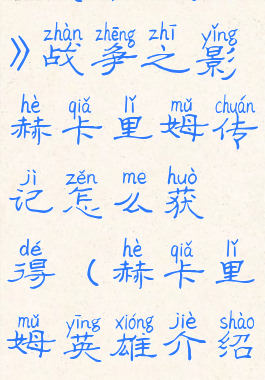 zhàn zhēng zhī yǐng
》战争之影
hè qiǎ lǐ mǔ chuán
赫卡里姆传
jì zěn me huò
记怎么获
dé hè qiǎ lǐ
得（赫卡里
mǔ yīng xióng jiè shào
姆英雄介绍